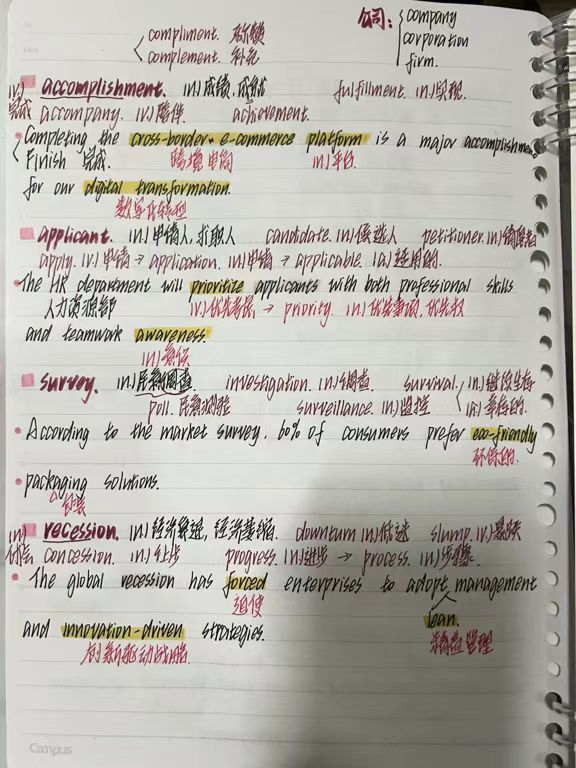 compliment. 称赞
complement. 补充
公司: company
corporation
firm.
accomplishment. (n.)成绩, 成就 fulfillment. (n.)实现.
(v.)完成 accompany. (v.)陪伴 achievement.
Completing the cross-border e-commerce platform is a major accomplishment
Finish 完成. 跨境电商 (n.)平台
for our digital transformation.
数字化转型
applicant. (n.)申请人, 求职人 candidate. (n.)候选人 petitioner. (n.)请愿者
apply. (v.)申请 → application. (n.)申请 → applicable. (a.)适用的.
The HR department will prioritize applicants with both professional skills
人力资源部 (v.)优先考虑 → priority. (n.)优先事项, 优先权
and teamwork awareness.
(n.)意识
survey. (n.)民意调查. investigation. (n.)调查. survival. (n.)继续生存
poll. 民意测验 surveillance. (n.)监控 (a.)幸存的.
According to the market survey. 60% of consumers prefer eco-friendly
环保的.
packaging solutions.
包装
recession. (n.)经济衰退, 经济萎缩. downturn (n.)低迷 slump. (v.)暴跌
concession. (n.)让步 progress. (n.)进步 → process. (n.)步骤.
The global recession has forced enterprises to adopt management
迫使 lean.
and innovation-driven strategies. 精益管理
创新驱动战略.
Campus